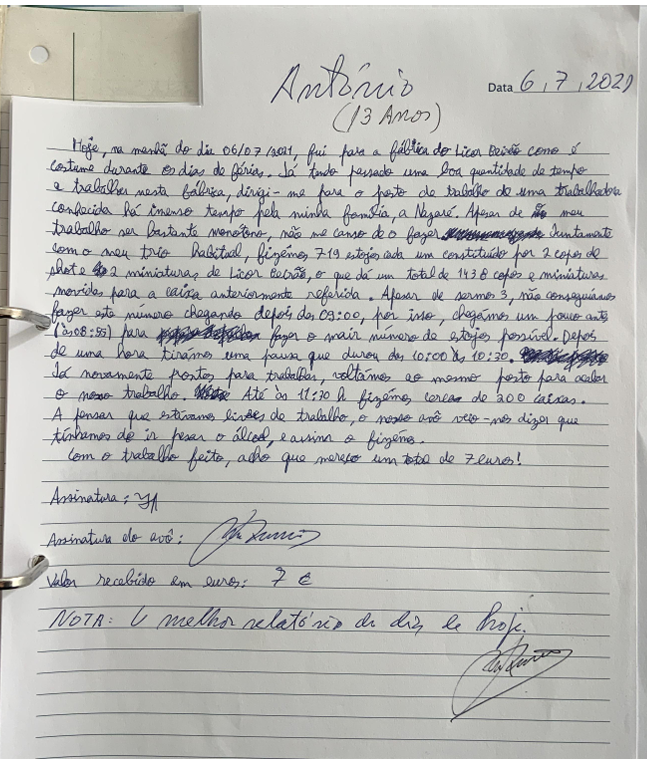 António
Data 6, 7, 2021
(13 Anos)
Hoje, na manhã do dia 06/07/2021, fui para a fábrica do Licor Beirão como é
costume durante os dias de férias. Já tendo passado uma boa quantidade de tempo
a trabalhar nesta fábrica, dirigi-me para o posto de trabalho de uma trabalhadora
conhecida há imenso tempo pela minha família, a Nazaré. Apesar de meu
trabalho ser bastante monótono, não me canso de o fazer Juntamente
com o meu trio habitual, fizémos 719 estojos cada um constituído por 2 copos de
shot e 2 miniaturas de Licor Beirão, o que dá um total de 1438 copos e miniaturas
movidas para a caixa anteriormente referida. Apesar de sermos 3, não conseguíamos
fazer este número chegando depois das 09:00, por isso, chegámos um pouco antes
(às 08:55) para fazer o maior número de estojos possível. Depois
de uma hora tirámos uma pausa que durou das 10:00 às 10:30.
Já novamente prontos para trabalhar, voltámos ao mesmo posto para acabar
o nosso trabalho. Até às 11:30 h fizémos cerca de 200 caixas.
A pensar que estávamos livres de trabalho, o nosso avô veio-nos dizer que
tínhamos de ir pesar o álcool, e assim o fizémos.
Com o trabalho feito, acho que mereço um total de 7 euros!
Assinatura:
Assinatura do avô:
Valor recebido em euros: 7 €
NOTA: O melhor relatório do dia de hoje.